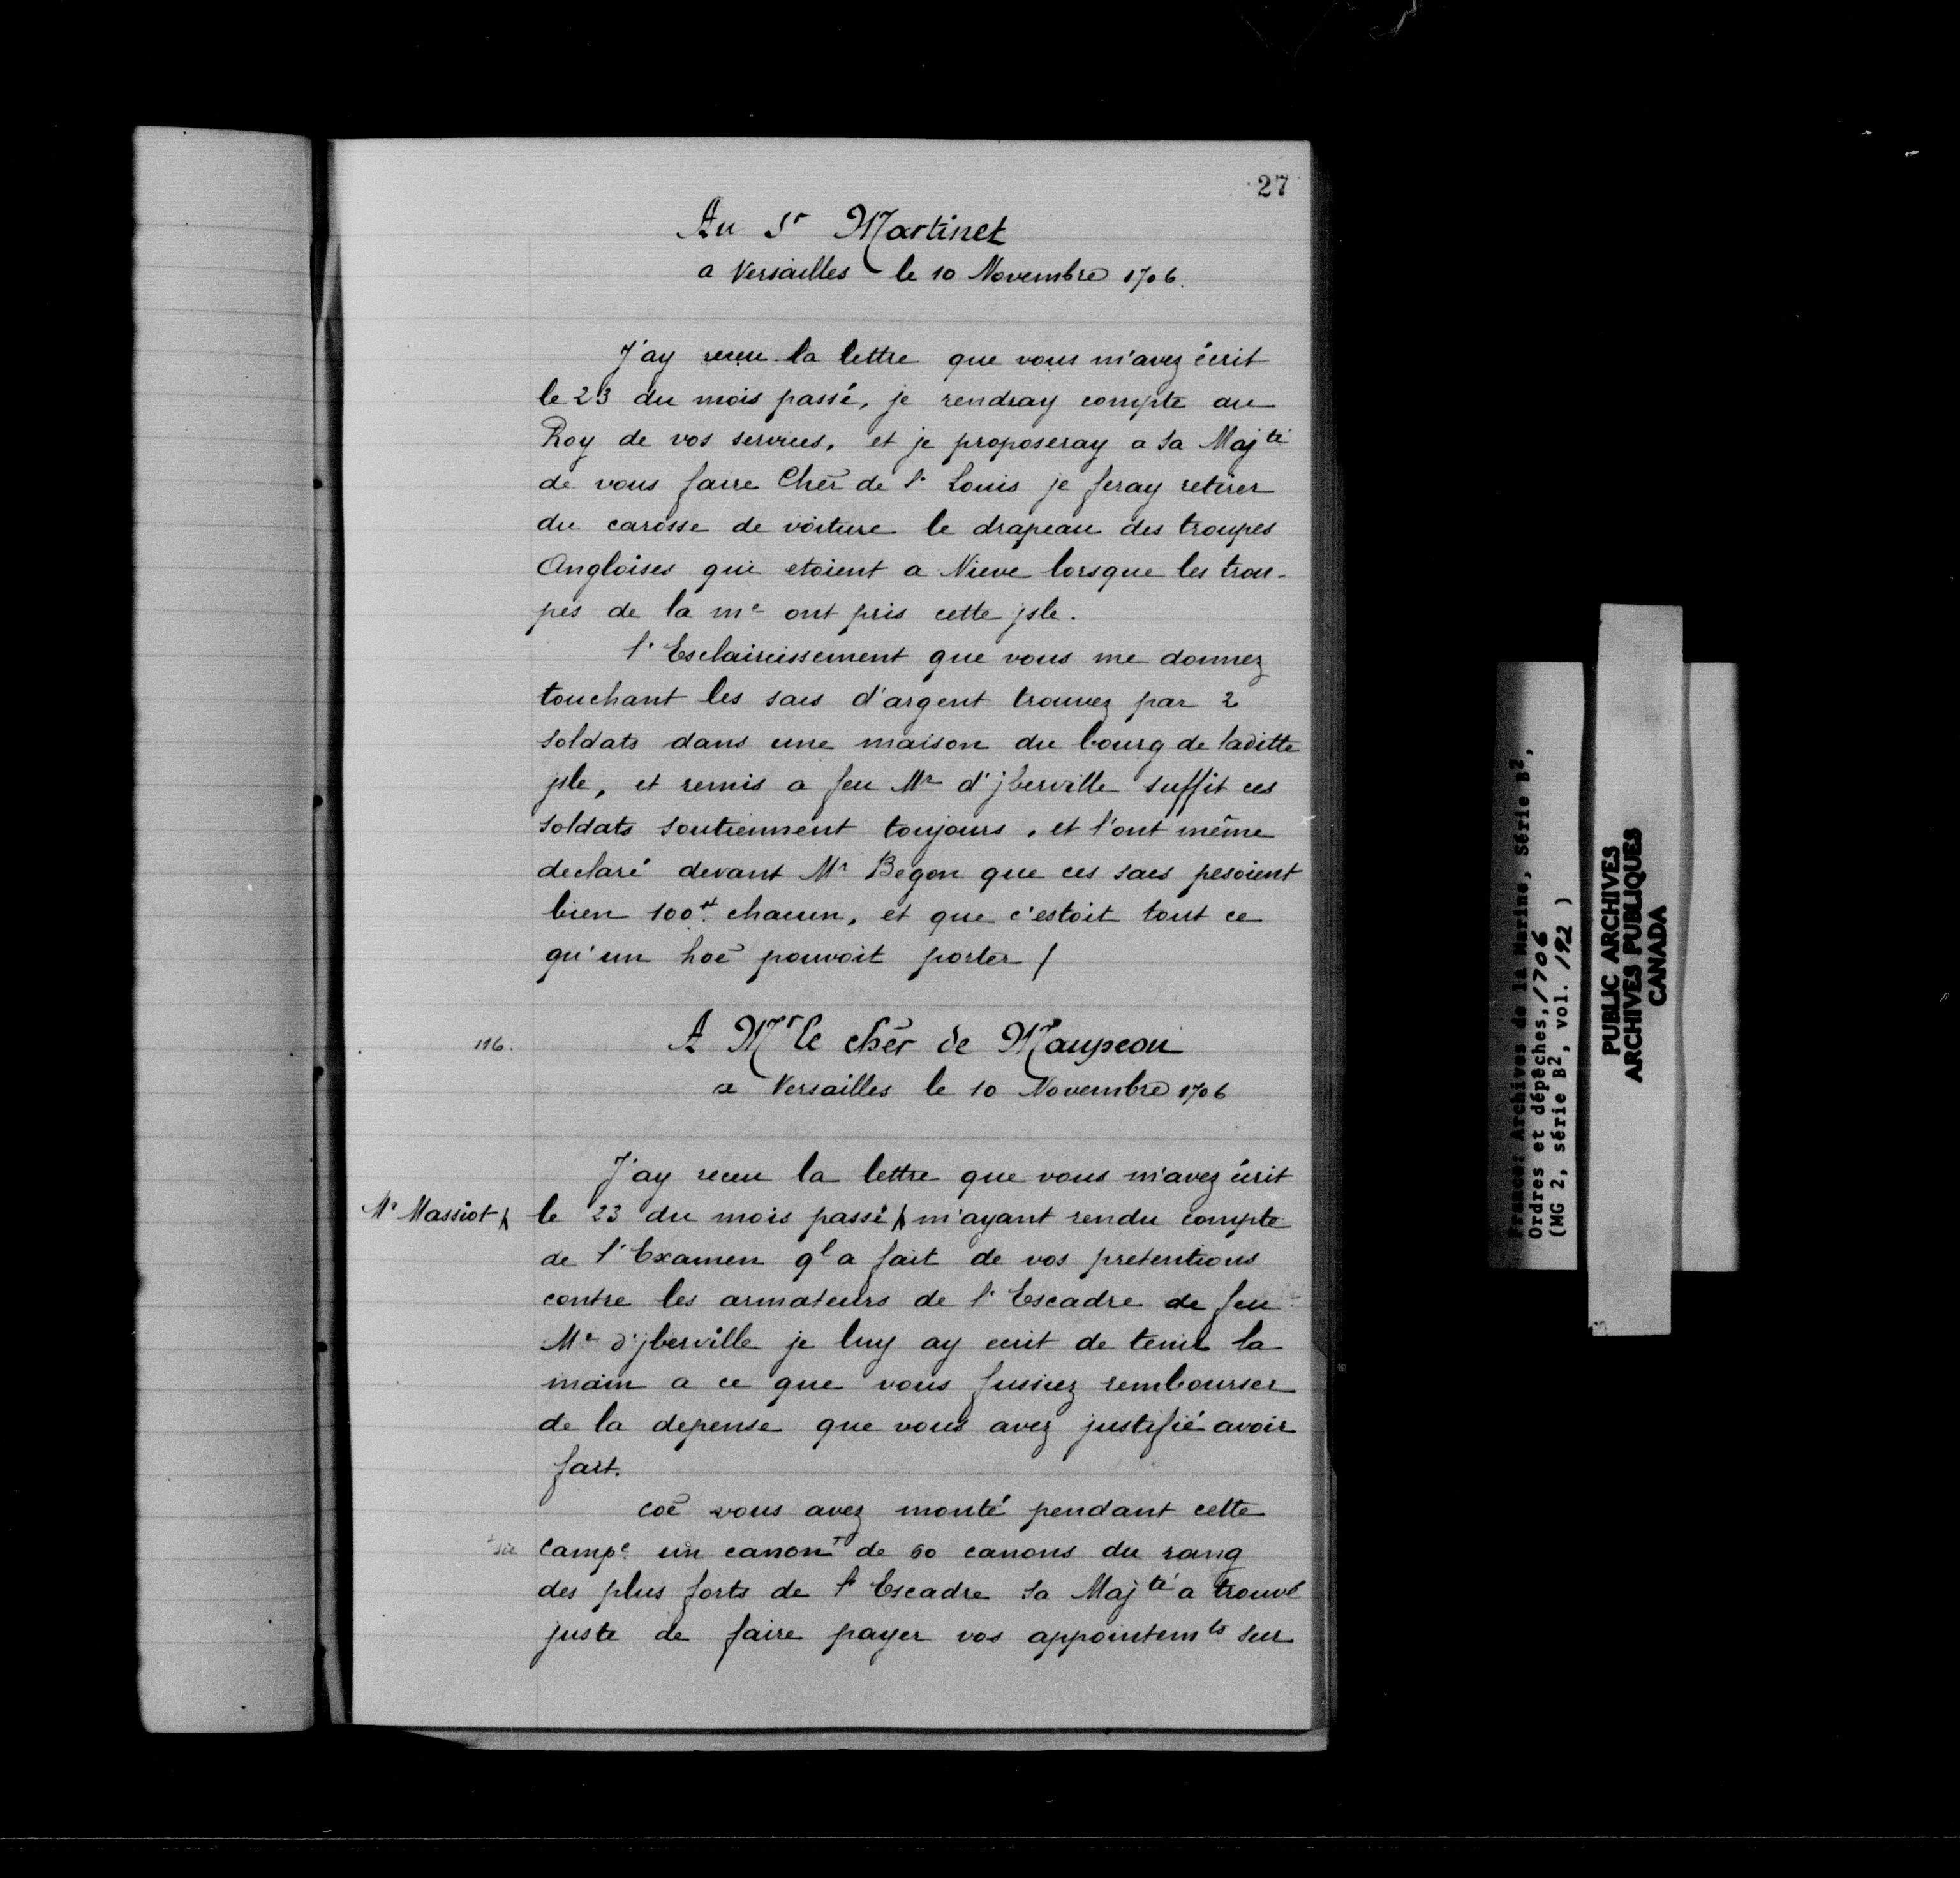 27
Au Sr Martinet
a Versailles le 10 Novembre 1706.
J'ay receu la lettre que vous m'avez écrit
le 23 du mois passé, je rendray compte au
Roy de vos services, et je proposeray a Sa Majté
de vous faire Cher de St Louis je feray retirer
du carosse de voiture le drapeau des troupes
Angloises qui etoient a Nieve lorsque les trou-
pes de la me ont pris cette jsle.
l'Esclaircissement que vous me donnez
touchant les sacs d'argent trouvez par 2
soldats dans une maison du bourg de laditte
jsle, et remis a feu Mr d'jberville suffit ces
soldats soutiennent toujours, et l'ont même
declaré devant Mr Begon que ces sacs pesoient
bien 100# chacun, et que c'estoit tout ce
qu'un hoe pouvoit porter /
116.
A Mr le cher de Maupeou
a Versailles le 10 Novembre 1706
J'ay receu la lettre que vous m'avez écrit
Mr Massiot
le 23 du mois passé m'ayant rendu compte
de l'Examen ql a fait de vos pretentions
contre les armateurs de l'Escadre de feu
Mr d'jberville je luy ay ecrit de tenir la
main a ce que vous fussiez rembourser
de la depense que vous avez justifié avoir
fait.
coe vous avez monté pendant cette
+ sic
Campe un canon+ de 60 canons du rang
des plus forts de l'Escadre Sa Majté a trouvé
juste de faire payer vos appointemts sur
France: Archives de la Marine, Série B2,
Ordres et dépêches, 1706
(MG 2, série B2, vol. 192 )
PUBLIC ARCHIVES
ARCHIVES PUBLIQUES
CANADA